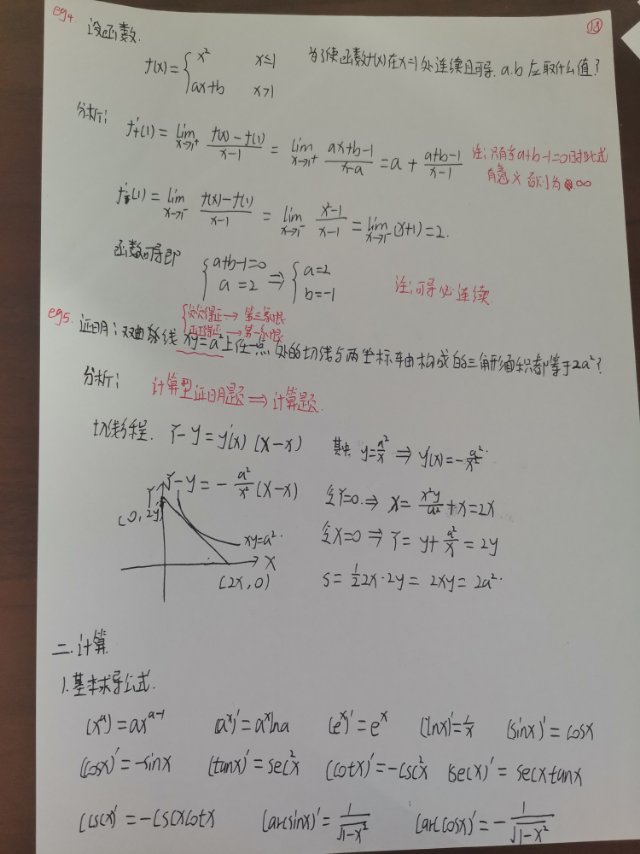 18
eg4. 设函数.
f(x)={ x² x≤1 为了使函数f(x)在x=1处连续且可导, a.b 应取什么值?
ax+b x>1
分析:
f'₊(1)=lim x→1⁺ (f(x)-f(1))/(x-1) = lim x→1⁺ (ax+b-1)/(x-a) = a + (a+b-1)/(x-1) 注:只有当a+b-1=0时此式
有意义否则为∞
f'₋(1)=lim x→1⁻ (f(x)-f(1))/(x-1) = lim x→1⁻ (x²-1)/(x-1) = lim x→1⁻ (x+1)=2.
函数可导即 { a+b-1=0 ⇒ { a=2
a=2 b=-1 注:可导必连续
→ 第三象限
→ 第一象限
eg5. 证明:双曲线 xy=a² 上任一点处的切线与两坐标轴构成的三角形面积都等于2a²?
分析: 计算型证明题 ⇒ 计算题.
切线方程. Y-y=y'(x)(X-x) 其中 y=a²/x ⇒ y'(x)=-a²/x²
Y-y=-a²/x²(X-x) 令Y=0. ⇒ X=x²y/a²+x=2x
Y
(0,2y) 令X=0 ⇒ Y=y+a²/x=2y
xy=a²
X
(2x,0) S=½2x·2y=2xy=2a².
二.计算
1.基本求导公式.
(xᵃ)'=axᵃ⁻¹ (aˣ)'=aˣlna (eˣ)'=eˣ (lnx)'=1/x (sinx)'=cosx
(cosx)'=-sinx (tanx)'=sec²x (cotx)'=-csc²x (secx)'=secxtanx
(cscx)'=-cscxcotx (arcsinx)'=1/√(1-x²) (arccosx)'=-1/√(1-x²)